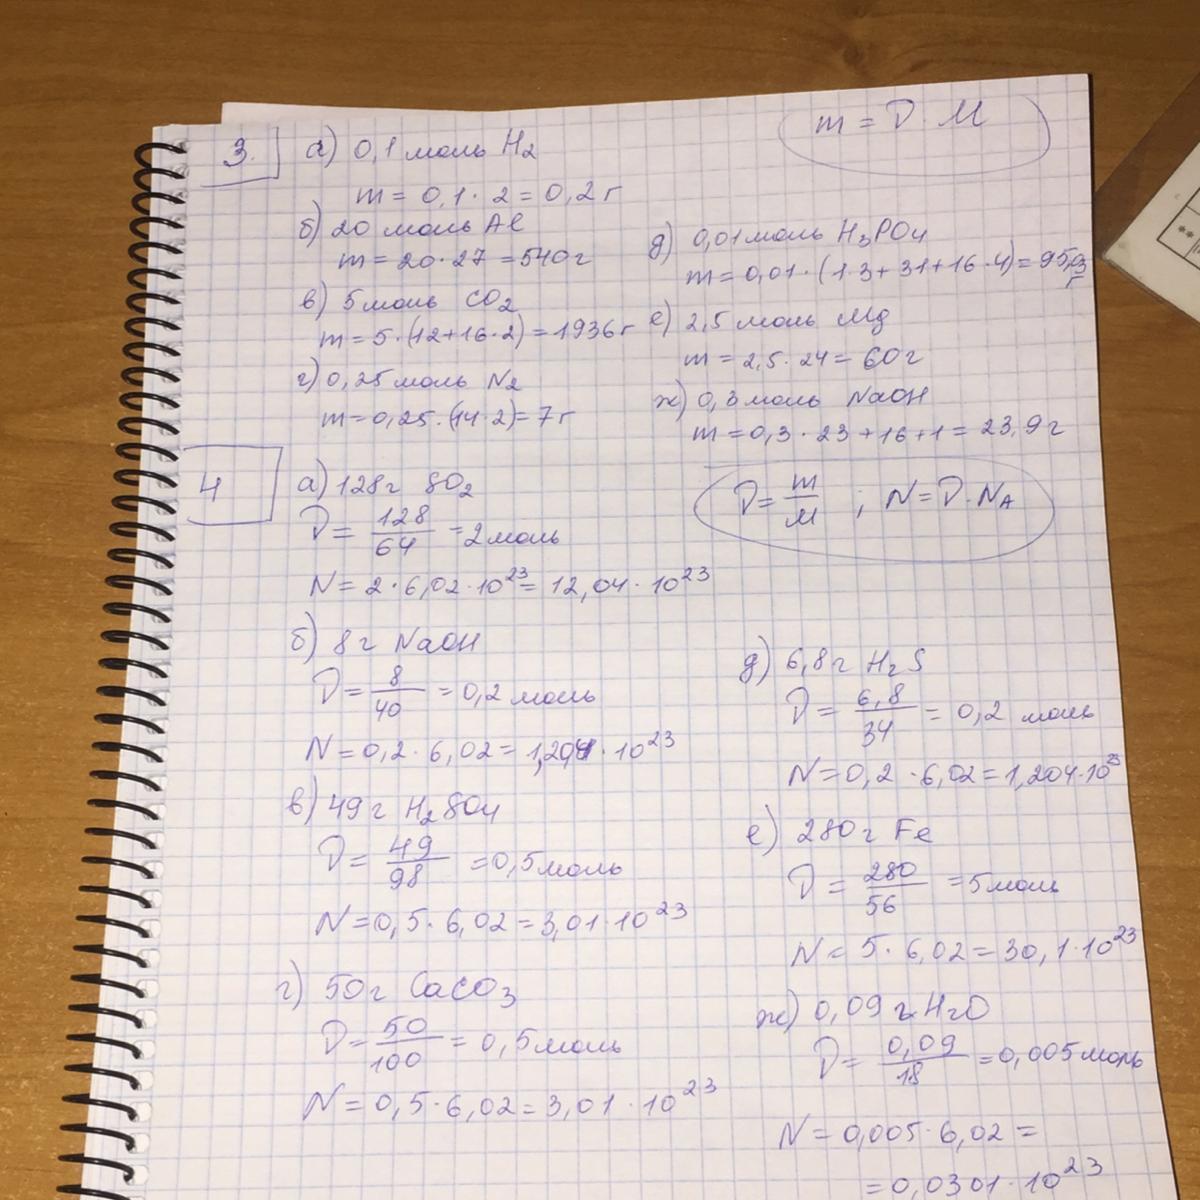 m = D · M
3.
а) 0,1 моль H2
m = 0,1 · 2 = 0,2 г
б) 20 моль Al
m = 20 · 27 = 540 г
в) 5 моль CO2
m = 5 · (12+16·2) = 1936 г
г) 0,25 моль N2
m = 0,25 · (14·2) = 7 г
д) 0,01 моль H3PO4
m = 0,01 · (1·3+31+16·4) =
г
е) 2,5 моль Mg
m = 2,5 · 24 = 60 г
ж) 0,3 моль NaOH
m = 0,3 · 23+16+1 = 23,9 г
4
D = m/M ; N = D · NA
а) 128 г SO2
D = 128/64 = 2 моль
N = 2 · 6,02 · 10^23 = 12,04 · 10^23
б) 8 г NaOH
D = 8/40 = 0,2 моль
N = 0,2 · 6,02 = 1,204 · 10^23
в) 49 г H2SO4
D = 49/98 = 0,5 моль
N = 0,5 · 6,02 = 3,01 · 10^23
г) 50 г CaCO3
D = 50/100 = 0,5 моль
N = 0,5 · 6,02 = 3,01 · 10^23
д) 6,8 г H2S
D = 6,8/34 = 0,2 моль
N = 0,2 · 6,02 = 1,204 · 10^23
е) 280 г Fe
D = 280/56 = 5 моль
N = 5 · 6,02 = 30,1 · 10^23
ж) 0,09 г H2O
D = 0,09/18 = 0,005 моль
N = 0,005 · 6,02 =
= 0,0301 · 10^23